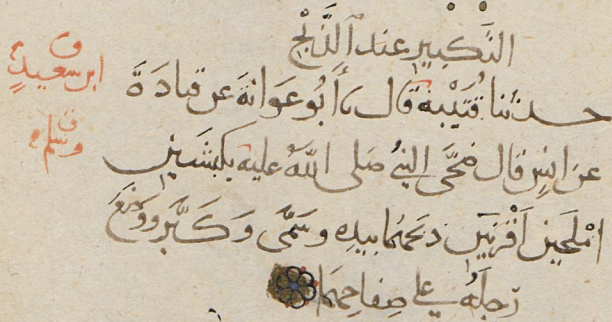 التَّكْبِيرِ عند الذَّبْحِ
حدثنا قُتَيْبَة قال نا أَبُو عَوَانَةَ عن قتادَةَ
عن انسٍ قال ضَحَّى النبيُّ صَلى اللهُ عليه بكبشَينِ
امْلَحَينِ اَقْرَنَيْنِ ذبحهُما بيدِه وسَمَّى وَكَبَّرَ ووَضَعَ
رِجلَهُ على صِفاحِهِمَا
ابن سعيدٍ
وسلم